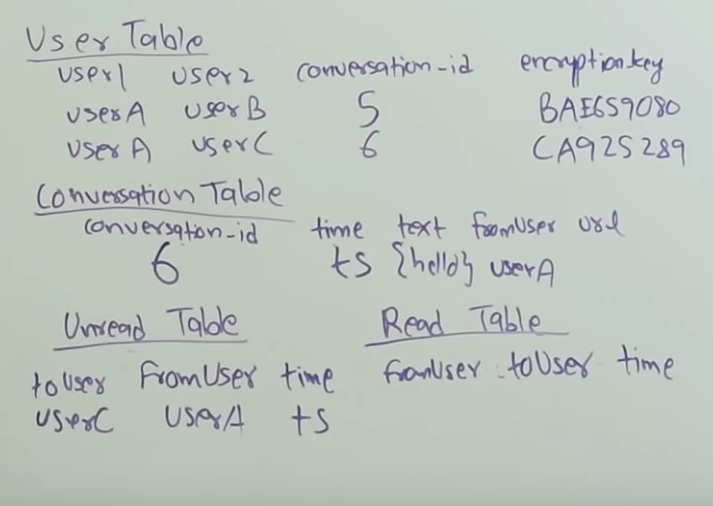 User Table
user1 user2 conversation-id encryptionkey
userA userB 5 BAE659080
userA userC 6 CA925289
Conversation Table
conversation-id time text fromUser url
6 ts {hello} userA
Unread Table Read Table
toUser FromUser time fromUser toUser time
userC userA ts